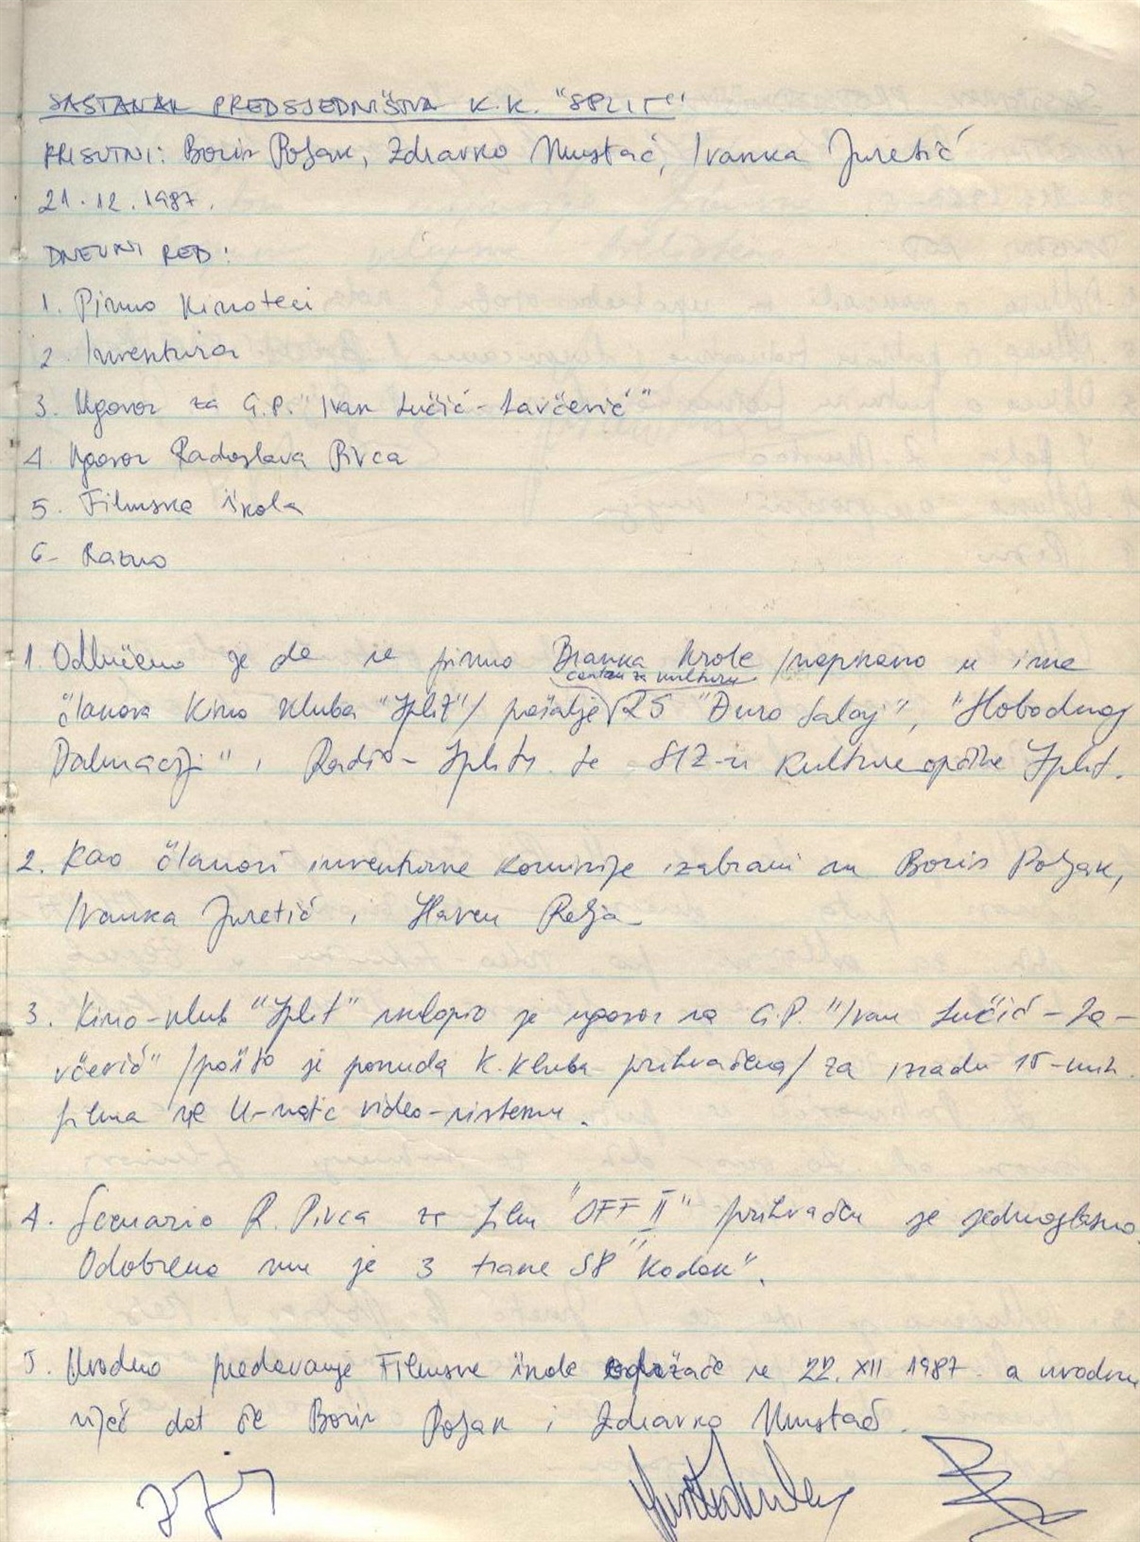 SASTANAK PREDSJEDNIŠTVA K.K. "SPLIT"
PRISUTNI: Boris Poljak, Zdravko Mustać, Ivanka Juretić
21.12.1987.
DNEVNI RED:
1. Pismo Kinoteci
2. Inventura
3. Ugovor za G.P. "Ivan Lučić-Lavčević"
4. Ugovor Radoslava Pivca
5. Filmska škola
6. Razno
1. Odlučeno je da se pismo Branka /napisano u ime
centru za kulturu
članova Kino kluba "Split"/ pošalje RS "Đuro Salaj", "Slobodnoj
Dalmaciji", Radio-Splitu te SIZ-u kulture općine Split.
2. Kao članovi inventurne komisije izabrani su Boris Poljak,
Ivanka Juretić i Slaven Relja.
3. Kino-klub "Split" sklopio je ugovor sa G.P. "Ivan Lučić-La-
včević" /pošto je ponuda K.kluba prihvaćena/ za izradu 15-min.
filma na U-matic video-sistemu.
4. Scenario R. Pivca za film "OFF II" prihvaćen je jednoglasno.
Odobreno mu je 3 trake S8 "Kodak".
5. Uvodno predavanje Filmske škole održaće se 22. XII 1987. a uvodnu
riječ dat će Boris Poljak i Zdravko Mustać.